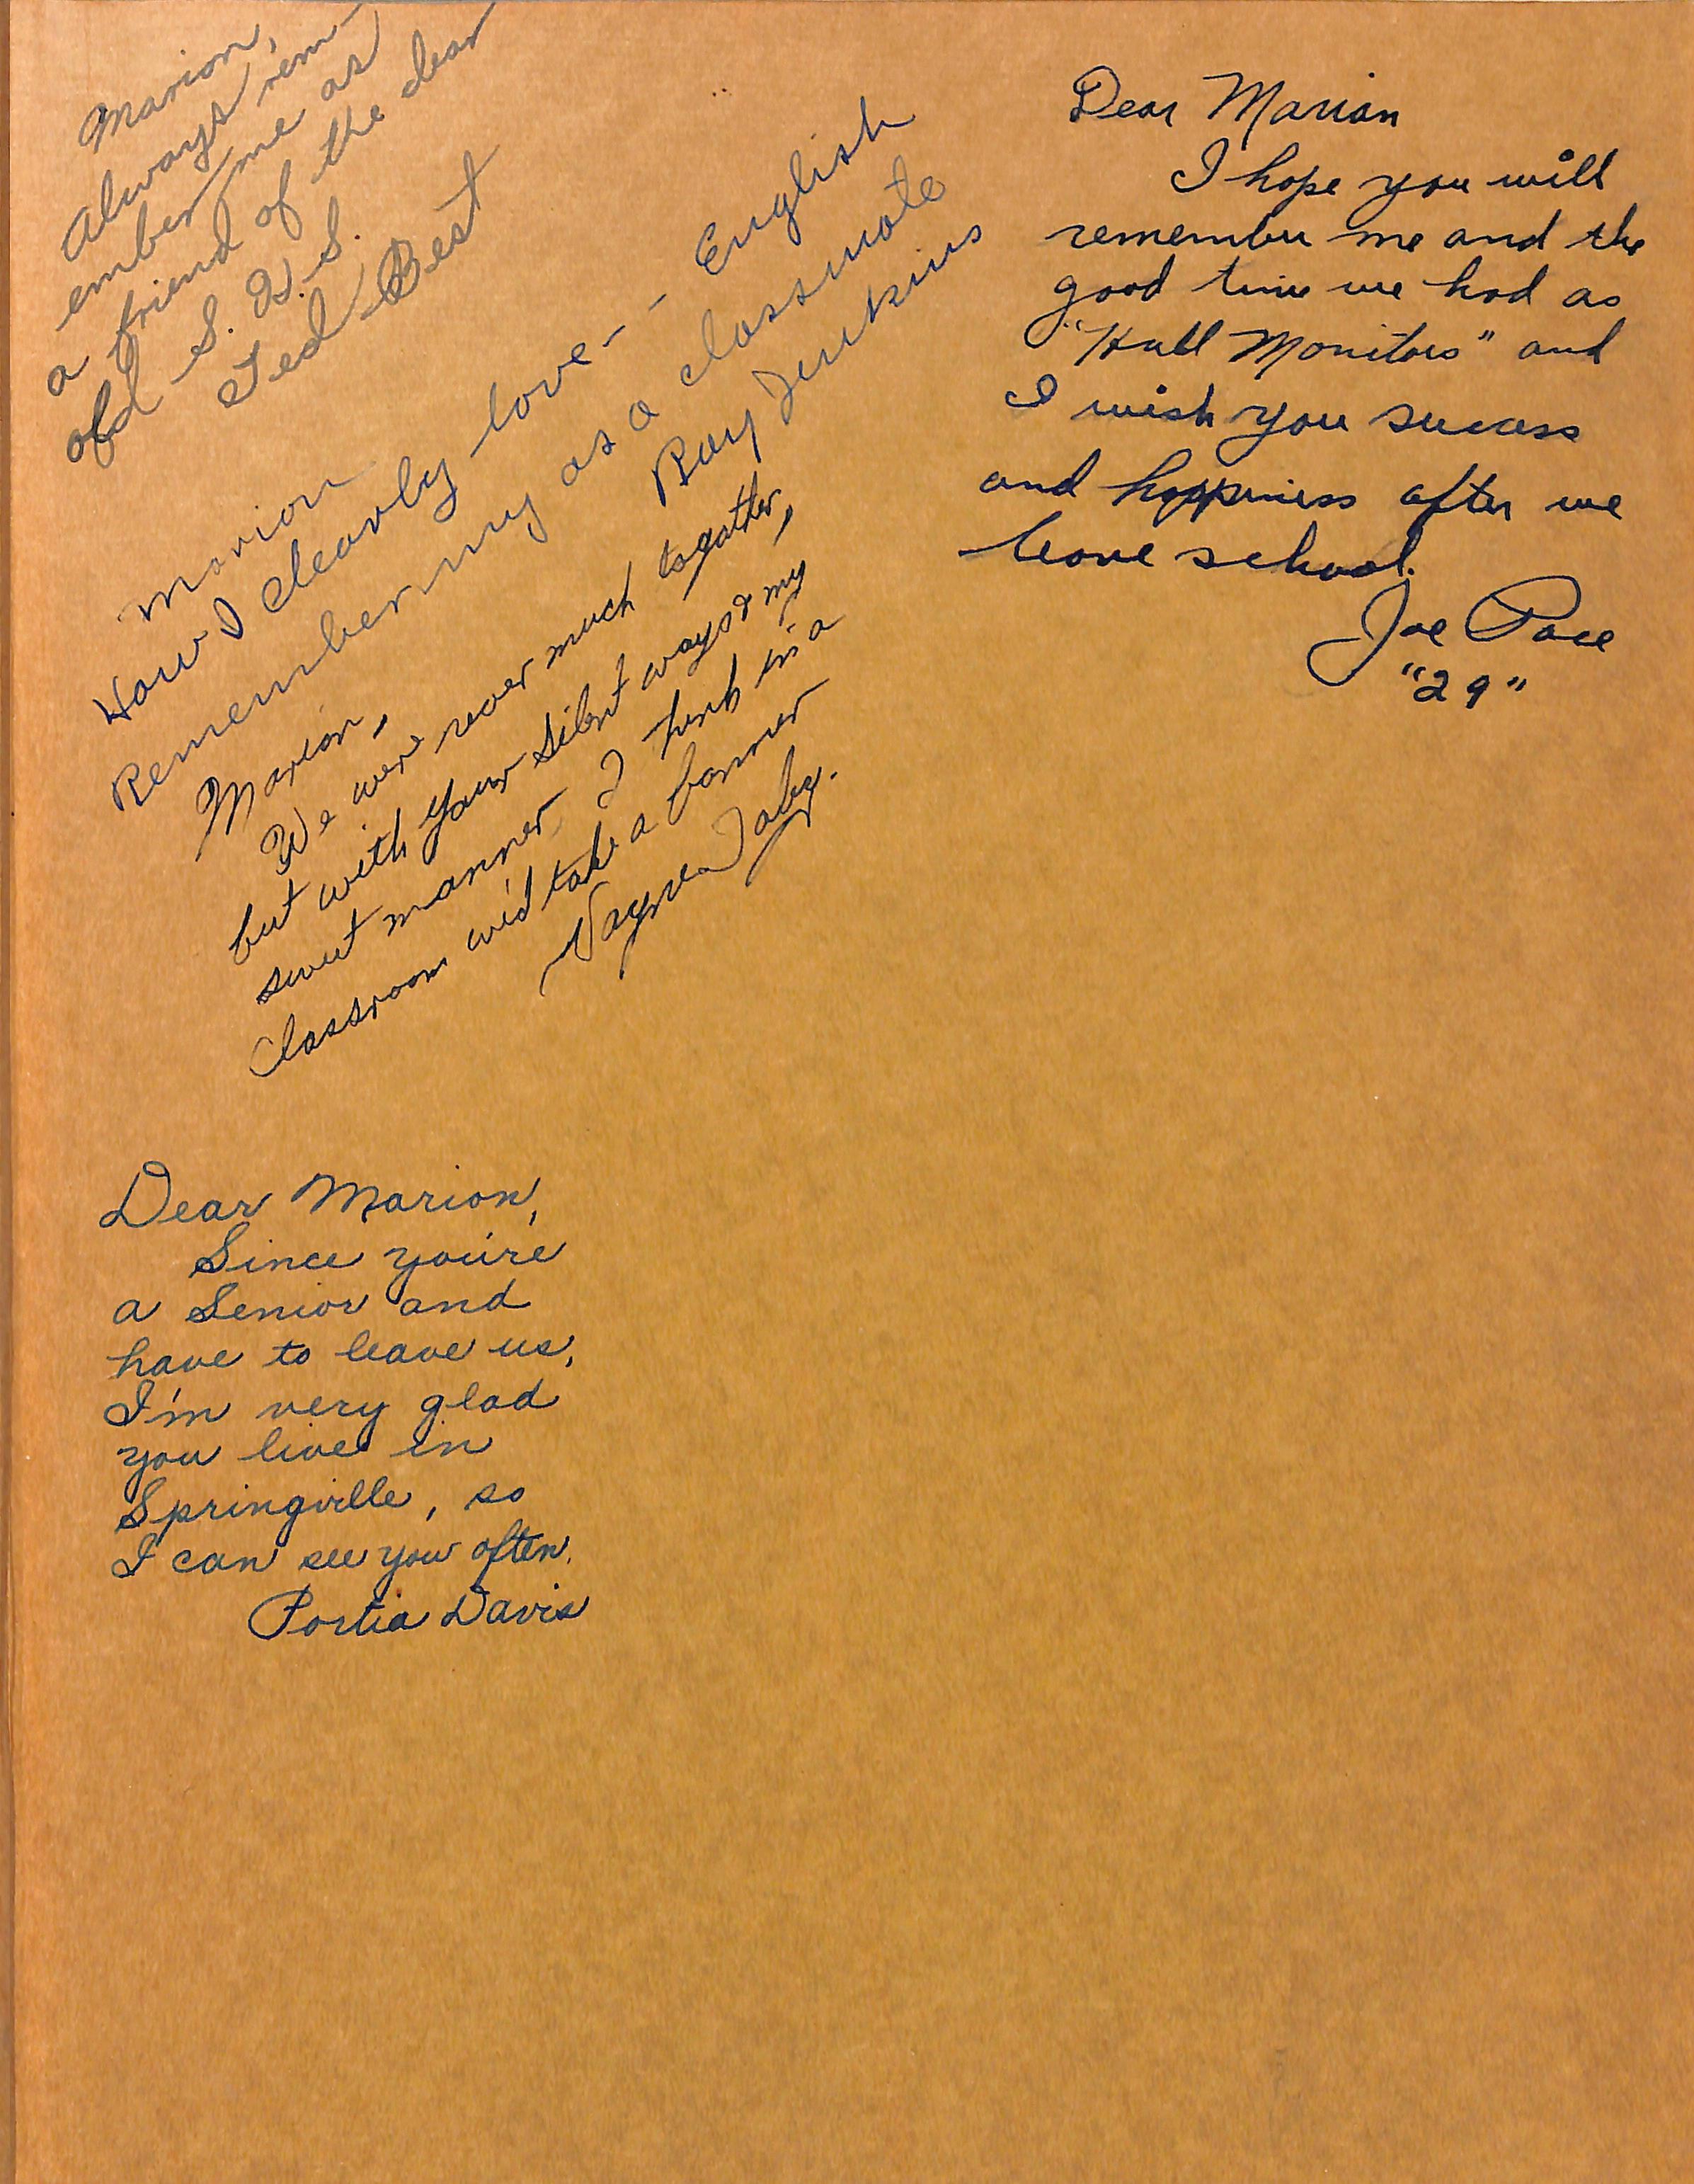 Marion,
Always rem-
ember me as
a friend of the dear
old S. H. S.
Ted Best
Marion
How I dearly love - - English
Remember my as a classmate
Roy Jenkins
Marion,
We were never much togather,
but with your silent ways & my
sweet manner I think in a
Classroom we'd take a banner
Dear Marian
I hope you will
remember me and the
good time we had as
"Hall Monitors" and
I wish you success
and happiness after we
leave school.
Joe Pace
"29"
Dear Marion,
Since you're
a Senior and
have to leave us,
I'm very glad
you live in
Springville, so
I can see you often.
Portia Davis